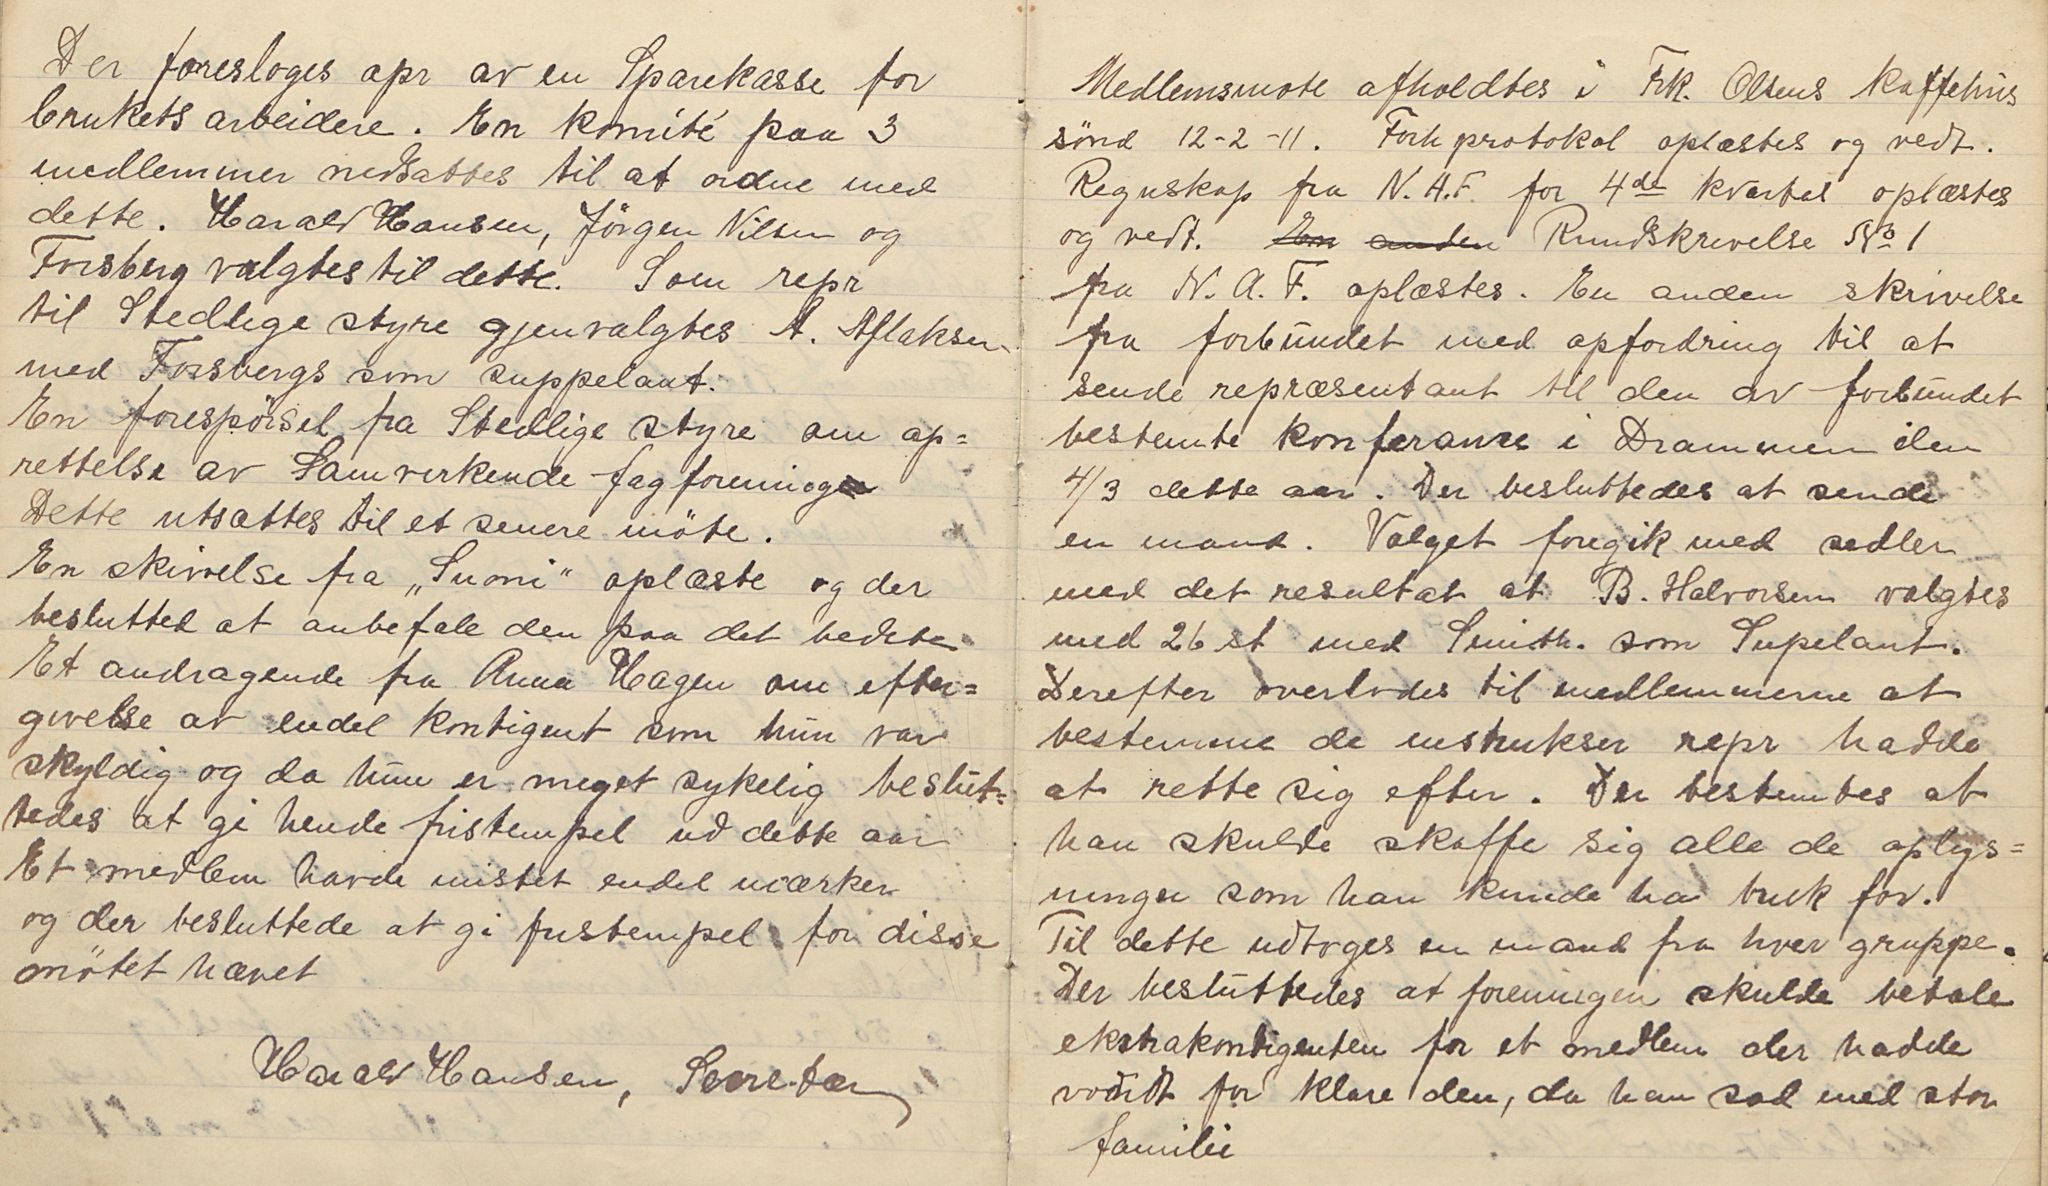 Der foresloges opr av en Sparekasse for
brukets arbeidere. En komité paa 3
medlemmer nedsattes til at ordne med
dette. Harald Hansen, Jörgen Nilsen og
Forsberg valgtes til dette. Som repr
til Stedlige styre gjenvalgtes A. Aflaksen
med Forsbergs som suppelant.
En forespörsel fra Stedlige styre om op=
rettelse av Samverkende fagforening
Dette utsættes til et senere möte.
En skivvelse fra „Suomi" oplæste og der
beslutted at anbefale den paa det bedste
Et andragende fra Anna Hagen om efter=
givelse av endel kontigent som hun var
skyldig og da hun er meget sykelig beslut=
tedes at gi hende fristempel ud dette aar
Et medlem havde mistet endel mærker
og der besluttede at gi fristempel for disse
mötet hævet
Harald Hansen, Secretær
Medlemsmote afholdtes i Frk. Olsens Kaffehus
sönd 12-2-11. Forh protokol oplæstes og vedt.
Regnskap fra N.A.F. for 4de kvartal oplæstes
og vedt. En anden Rundskrivelse No 1
fra N.A.F. oplæstes. En anden skrivelse
fra forbundet med opfordring til at
sende repræsentant til den av forbundet
bestemte konferanse i Drammen den
4/3 dette aar. Der besluttedes at sende
en mand. Valget foregik med sedler
med det resultat at B. Halvorsen valgtes
med 26 st med Smith. som Supelant.
Derefter overlodes til medlemmerne at
bestemme de instrukser repr hadde
at rette sig efter. Der bestemtes at
han skulde skaffe sig alle de oplys=
ninger som han kunde ha bruk for.
Til dette udtoges en mand fra hver gruppe.
Der besluttedes at foreningen skulde betale
ekstrakontigenten for et medlem der hadde
vondt for klare den, da han sad med stor
familie